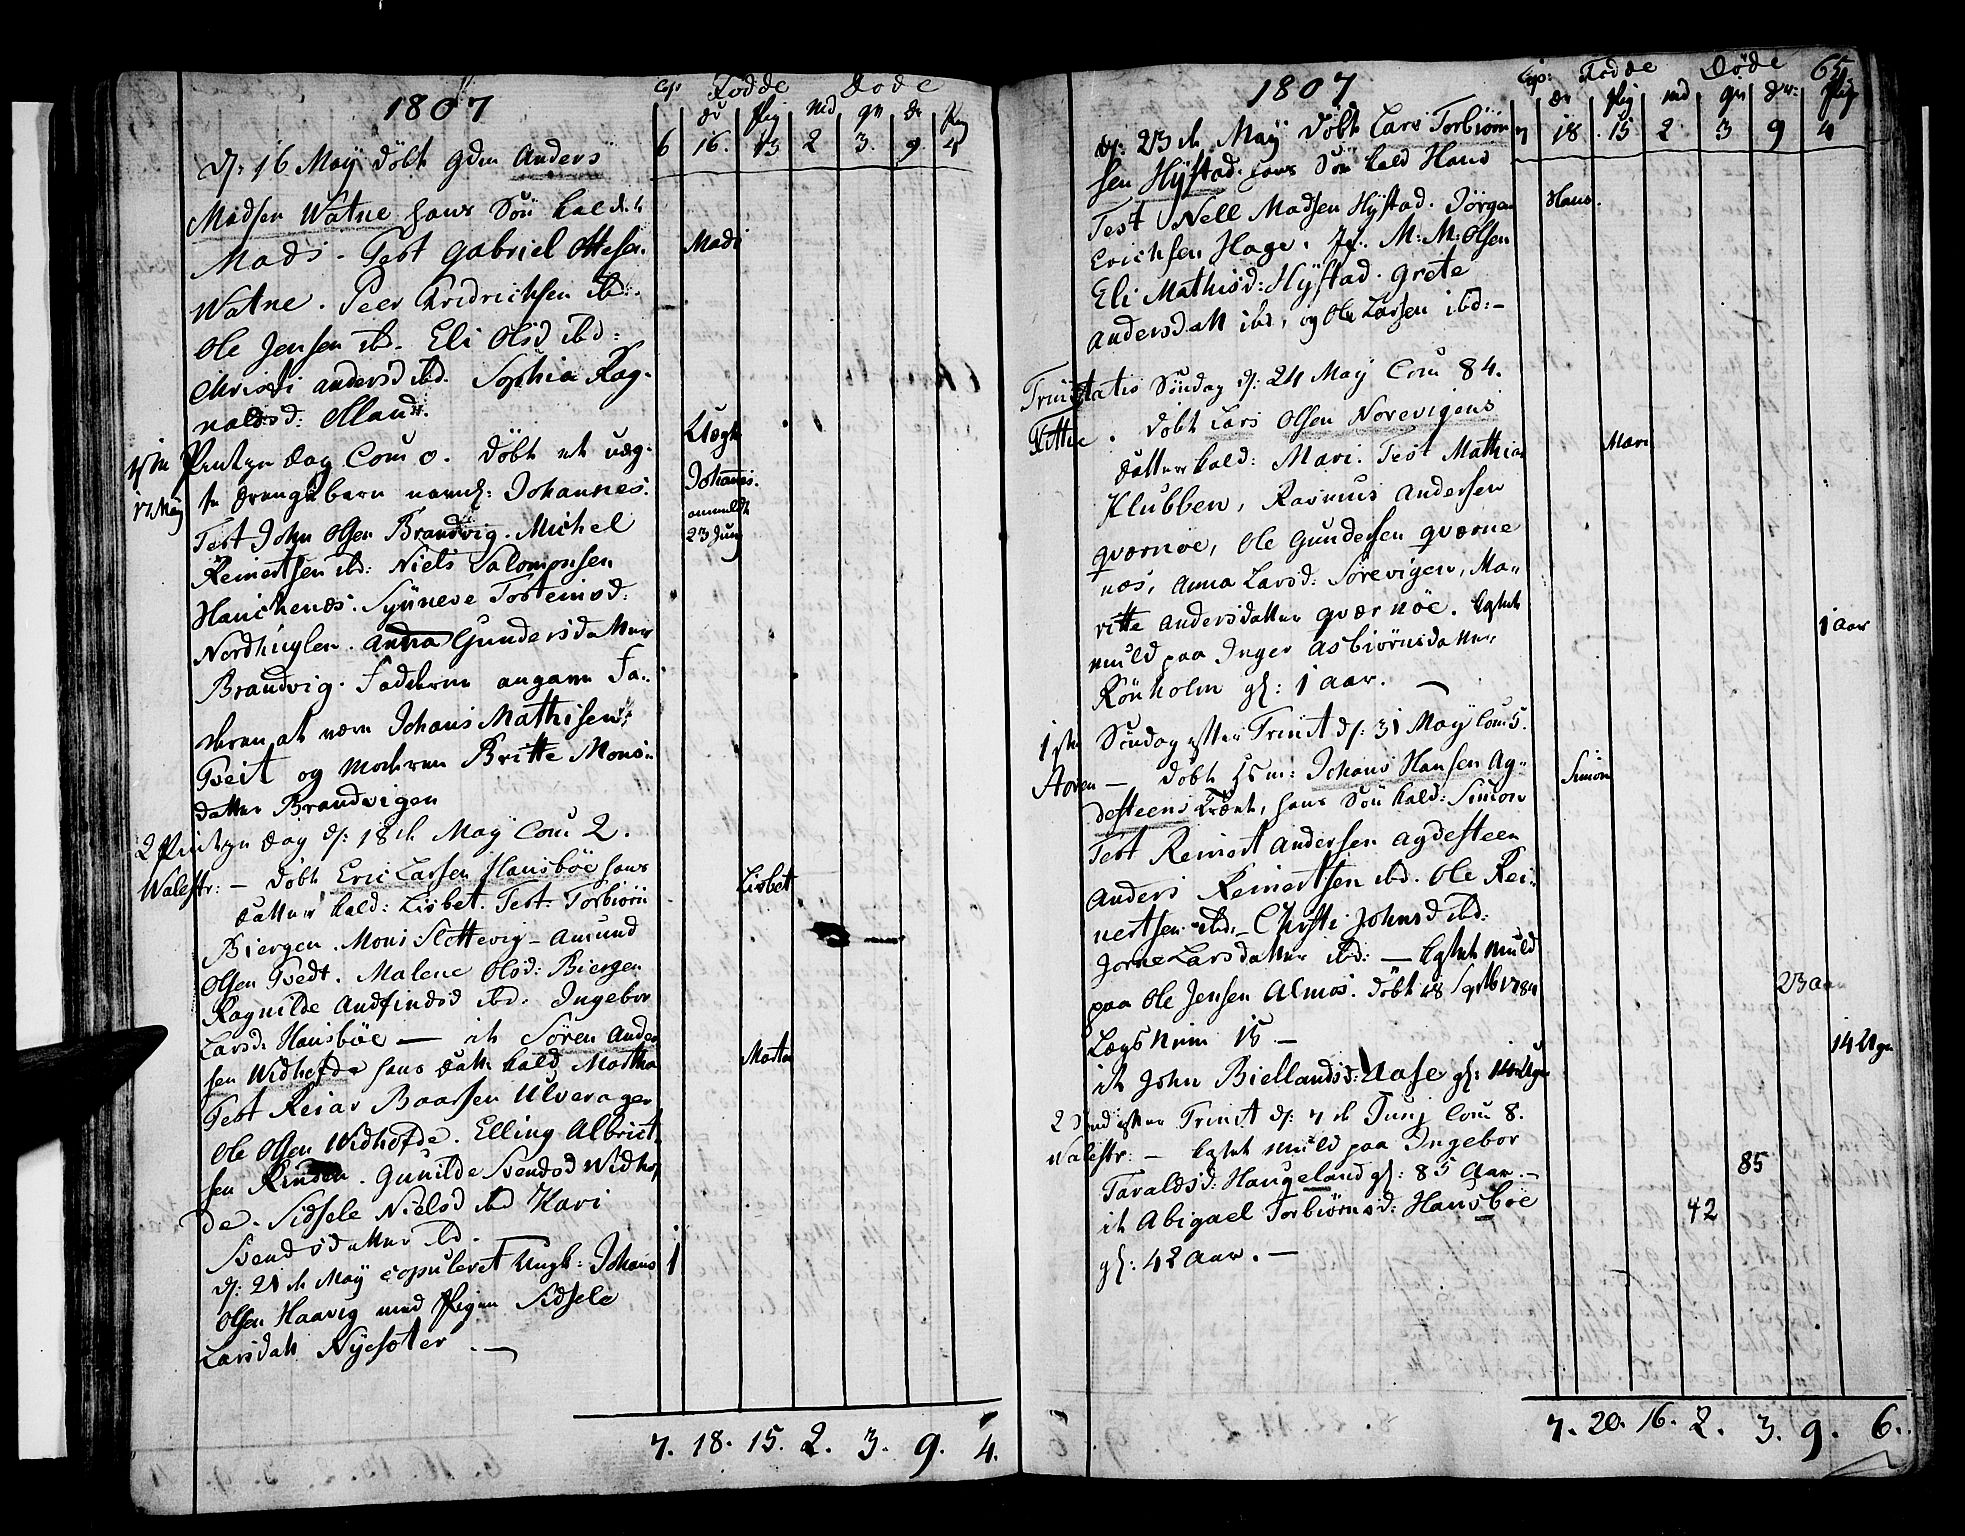 1807
Cop: Fødde Døde
Dr Pig Md Qv Dr Pig
6 16. 13 2 3. 9. 4
d: 16 Maÿ döbt gdm Anders
Madsen Watne hans Sön kaldet
Mads. Test Gabriel Ottesen
Mads
Watne. Peer Fridrichsen ibd:
Ole Jensen ibd. Eli Olsd ibd:
Christi Andersd ibd. Sophia Rag-
naldsd: Øland.
1ste Pintzu dag Com 0. döbt et uæg-
Uægte
17 Maÿ
te drengebarn navnl: Johannes.
Johannes.
anmeldt
23 Junj
Test John Olsen Brandvig. Michel
Reinertsen ibd: Niels Salomonsen
Hanichenæs. Synneve Tosteinsd:
Nordhuglen. Anna Gundersdatter
Brandvig. Fadderne angave Fa-
deren at være Johans Mathisen
Tveit og Moderen Britte Mons-
datter Brandvigen
2 Pintzu dag d: 18de Maÿ Com 2.
Walestr: – döbt Eric Larsen Hansböe hans
Datter kald: Lisbet. Test: Torbiörn
Lisbet
Biergen. Mons Slettevig – Amund
Olsen Tvedt. Malene Olsd: Biergen
Ragnilde Andfindsd ibd: Ingebor
Larsd: Hansböe — it Sören Ander
sen Widhofde hans datt: kald Martha
Marta
Test Reiar Baarsen Ulverager
Ole Olsen Widhofde. Elling Albrict-
sen Rinden. Gunilde Svendsd Widhof
de. Sidsele Nielsd ibd Kari
Svendsdatter ibd.
d: 21de Maÿ copuleret Ungk: Johans
1
Olsen Haavig med Pigen Sidsele
Larsdatt Nÿesæter. —
7. 18. 15. 2. 3. 9. 4.
1807
65
Cop: Fødde Døde
Dr Pig Md Qv Dr: Pig
7 18. 15 2 3 9 4
d: 23de Maÿ döbt Lars Torbiörn
sen Hÿstad. hans Sön kald Hans
Hans.
Test Nell Madsen Hÿstad. Jörgen
Erichsen Hage. M: M: Olsen
Eli Mathisd: Hÿstad. Grete
Andersdatt ibd, og Ole Larsen ibd: –
Trinitatis Söndag d: 24 May Com 84.
Fittie. döbt Lars Olsen Norevigens
Datter kald: Mari. Test Mathias
Mari
Klubben, Rasmus Andersen
Qværnøe, Ole Gundersen Qværne
næs, Anna Larsd: Sörevigen, Ma-
ritte Andersdatter Qværnöe. Kastet
1 Aar
muld paa Inger Asbiörnsdatter
Rönholm gl: 1 Aar. —
1ste Söndag efter Trinit d: 31 Maÿ Com 5.
– döbt Hsm: Johans Hansen Ag-
Simon
desteens hans Sön kald: Simon
Test Reinert Andersen Agdesteen
Anders Reinertsen ibd. Ole Rei-
nertsen ibd. Christi Johnsd ibd:
Jorne Larsdatter ibd: — Kastet Muld
paa Ole Jensen Almos. döbt 28 Septb 1784
23 Aar
Lægs Num 15 –
14 Uger
it John Biellandsd: Uase gl: 14 Uger
2 Sønd efter Trinit d: 7de Junj Com 8.
Walestr: – Kastet muld paa Ingebor
85
Taraldsd: Haugeland gl: 85 Aar. –
it Abigael Torbiörnsd: Hansböe
42
gl: 42 Aar. —
7. 20. 16. 2. 3. 9. 6.